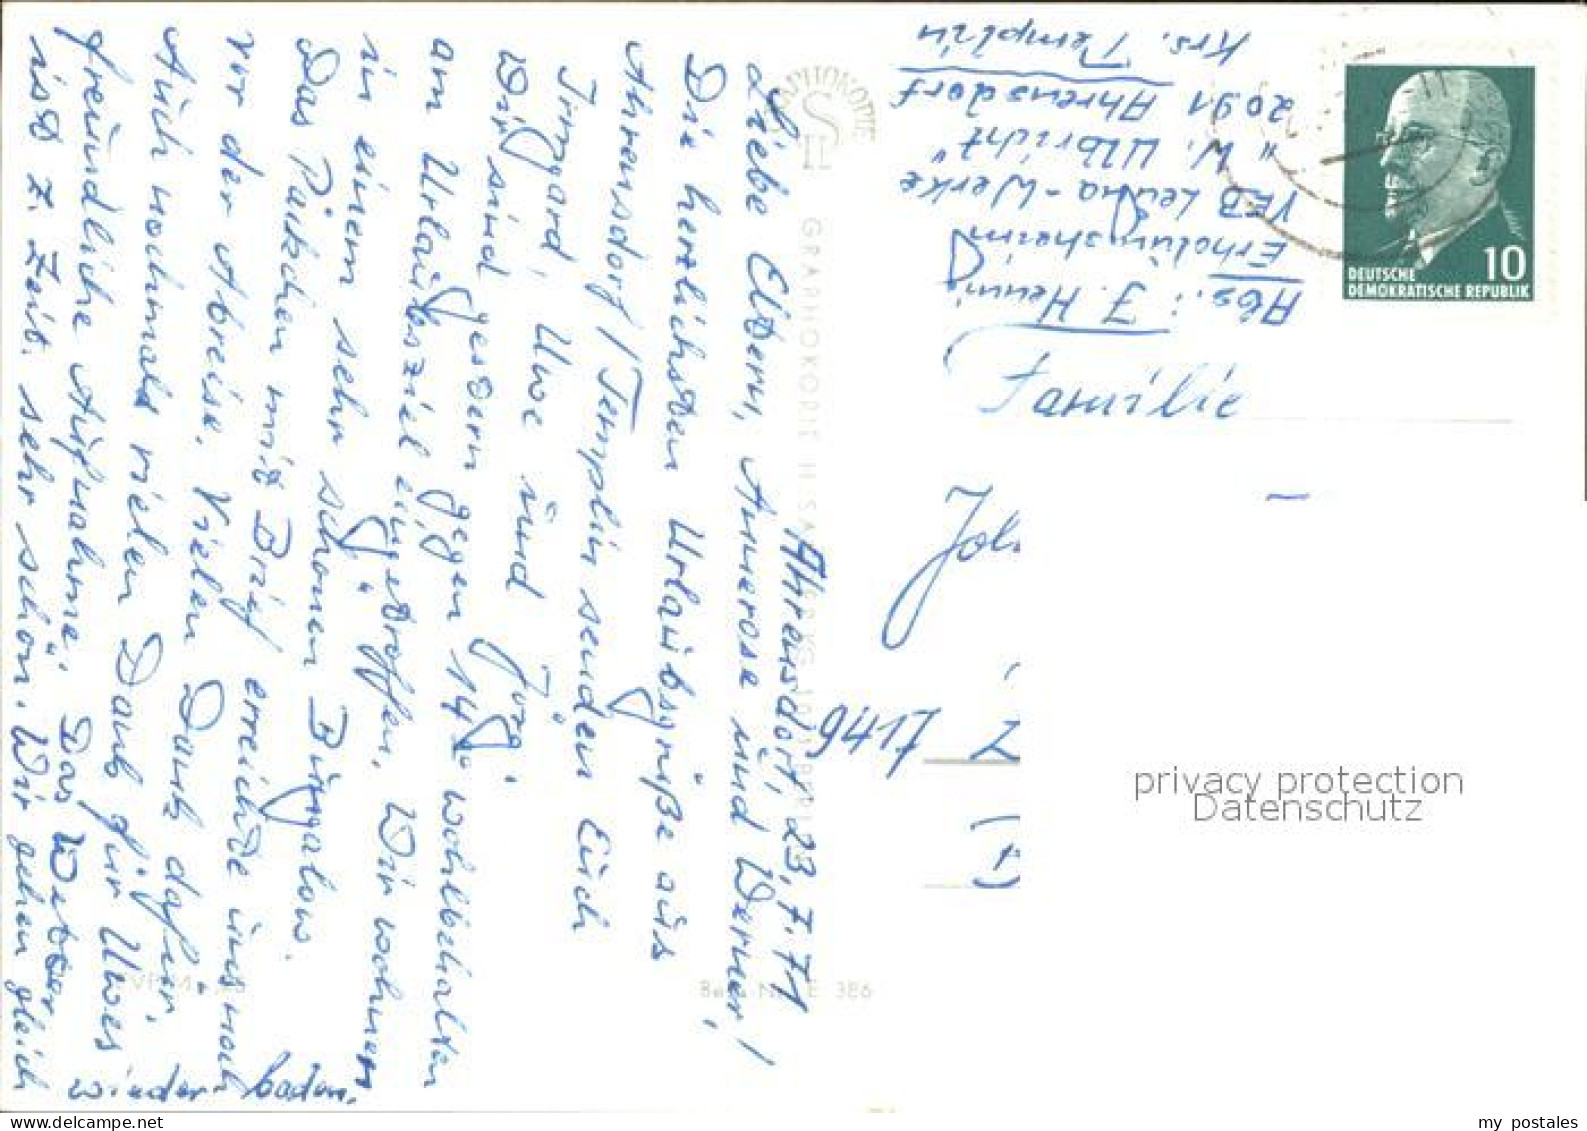 Ahrensdorf, 23.7.71
Liebe Eltern, Annerose und Werner!
Die herzlichsten Urlaubsgrüße aus
Ahrensdorf/Templin senden Euch
Irmgard, Uwe und Jörg.
Wir sind gestern gegen 14 wohlbehalten
am Urlaubsziel eingetroffen. Wir wohnen
in einem sehr schönen Bungalow.
Das Päckchen mit Brief erreichte uns noch
vor der Abreise. Vielen Dank dafür.
Auch nochmals vielen Dank für Uwes
freundliche Aufnahme. Das Wetter
ist z. Zeit sehr schön. Wir gehen gleich
wieder baden.
GRAPHOKOPIE
GRAPHOKOPIE H
386
Abs.: J. Hennig
Erholungsheim
VEB Leuna-Werke
"W. Ulbricht"
2091 Ahrensdorf
Krs. Templin
10
DEUTSCHE
DEMOKRATISCHE REPUBLIK
Familie
9417
privacy protection
Datenschutz
my postales